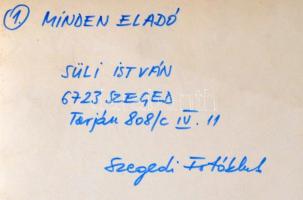 1. MINDEN ELADÓ
SÜLI ISTVÁN
6723 SZEGED
Tarján 808/c IV. 11
Szegedi Fotóklub